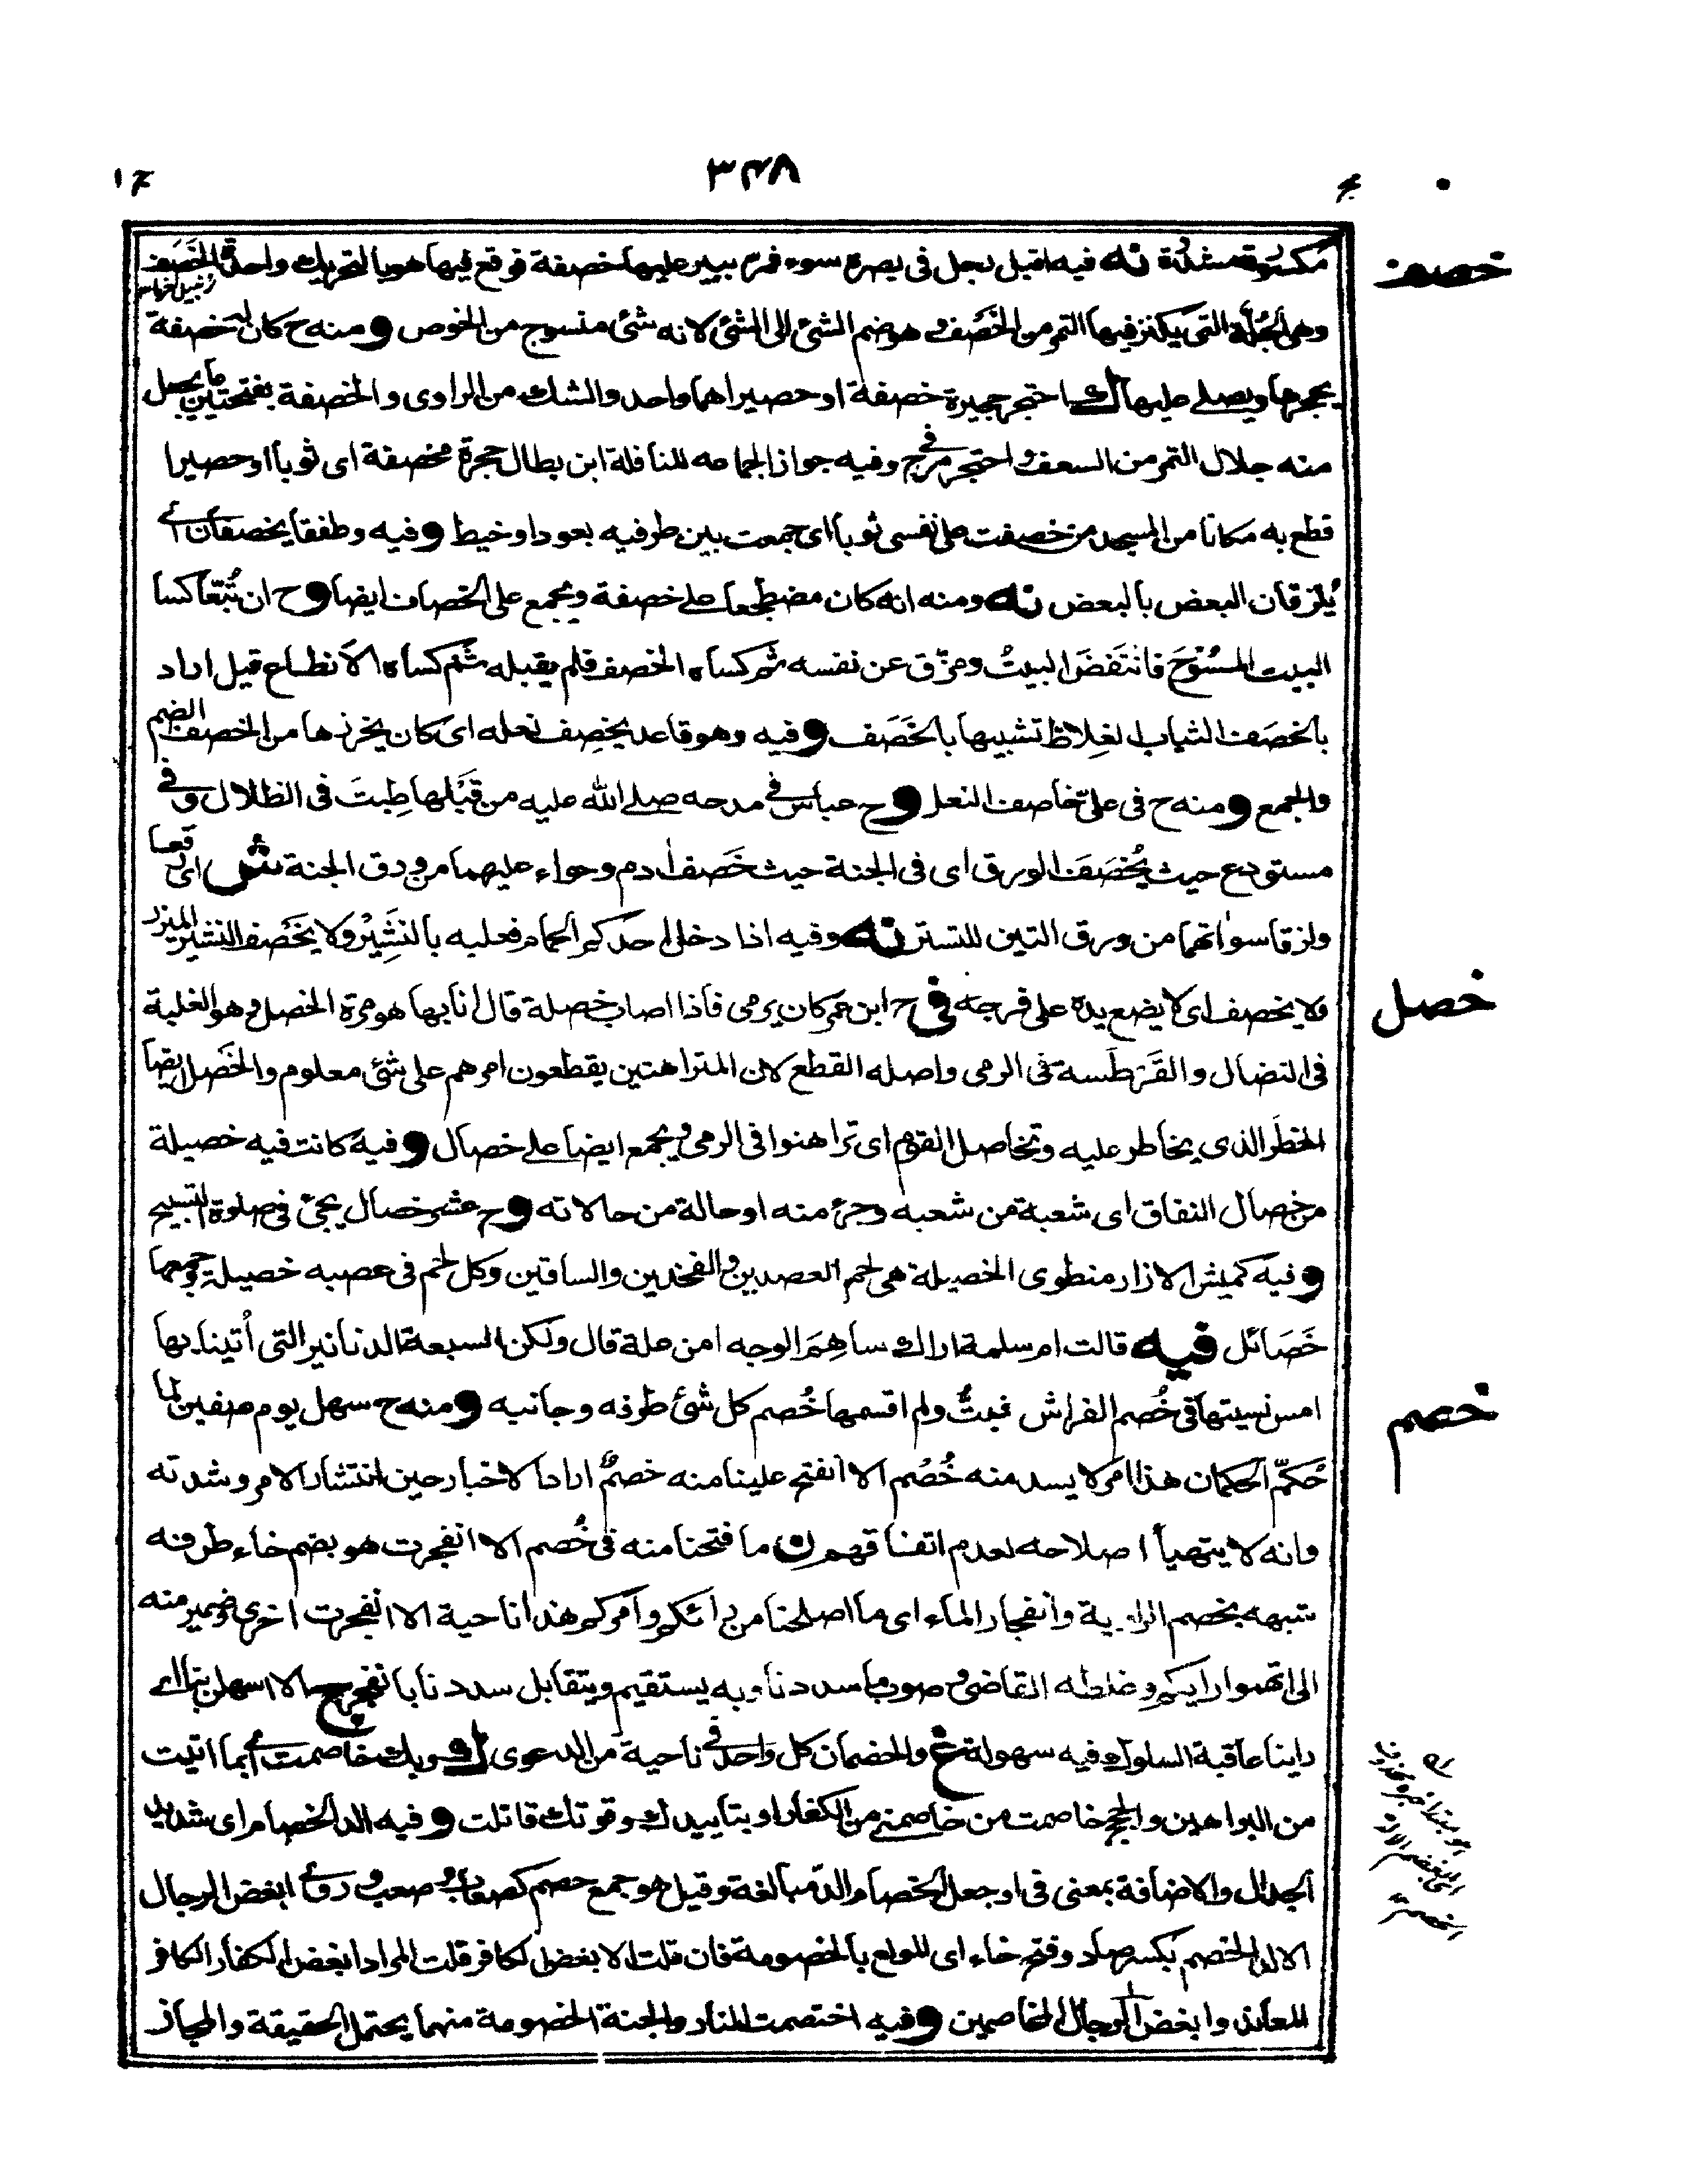 ٣٤٨
خصف
مكسورة مشددة نه فيه اقبل رجل في بصره سوء فمر ببير عليها خصفة فوقع فيها هو بالتحريك واحدة الخَصَف
وهي الجُلّة التي يكنز فيها التمر من الخَصْف وهو ضم الشئ الى الشئ لانه شئ منسوج من الخوص ومنه ح كان له خصفة
يحجرها ويصلي عليها ك احتجر حجيرة خصفة او حصيرا هما واحد والشك من الراوي والخصفة بفتحتين ما يجعل
منه جلال التمر من السعف واحتجر مر في ح وفيه جواز الجماعه للنافلة ابن بطال حجرة مخصفة اى ثوبا او حصيرا
قطع به مكانا من المسجد من خصفت على نفسي ثوبا اى جمعت بين طرفيه بعود او خيط وفيه وطفقا يخصفان اى
يُلزقان البعض بالبعض نه ومنه انه كان مضطجعا على خصفة ويجمع على الخصاف ايضا وح ان تُبّعا كسا
البيت المسُوْحَ فانتَفَضَ البيتُ ومزّق عن نفسه ثم كساه الخصف فلم يقبله ثم كساه الانطاع قيل اراد
بالخصَف الثياب الغِلاظ تشبيها بالخَصَف وفيه وهو قاعد يخصِف نعله اى كان يخرزها من الخصف الضم
والجمع ومنه ح في على خاصف النعل وح عباس في مدحه صلى الله عليه من قَبْلها طِبتَ في الظلال وفي
مستودع حيث يُخصَف الورق اى في الجنة حيث خَصَف ادم وحواء عليهما من ورق الجنة ش اى رقعا
ولزقا سواتهما من ورق التين للتستر نه وفيه اذا دخل احدكم الحمام فعليه بالنَشِيْر ولا يخصف النشير المئزر
خصل
ولا يخصف اى لا يضع يده على فرجه في ح ابن عمر كان يرمي فاذا اصاب خصلة قال انا بها هو مرة الخصل وهو الغلبة
في النضال والقَرْطَسة في الرمي واصله القطع لان المتراهنين يقطعون امرهم على شئ معلوم والخَصْل ايضا
الخطَر الذى يخاطر عليه وتخاصل القوم اى تراهنوا في الرمي ويجمع ايضا على خصال وفيه كانت فيه خصيلة
من خصال النفاق اى شعبة من شعبه وجزء منه او حالة من حالاته وح عشر خصال يجئ في صلوة التسبيح
وفيه كميش الازار منطوى الخصيلة هي لحم العضدين والفخذين والساقين وكل لحم في عصبه خصيلة وجمعها
خَصَائل فيه قالت ام سلمة اراك ساهِمَ الوجه امن علة قال ولكن السبعة الدنانير التي أتينا بها
خصم
امس نسيتها في خُصم الفراش فبتُّ ولم اقسمها خُصم كل شئ طرفه وجانبه ومنه ح سهل يوم صفين لما
حَكّم الحكمان هذا امر لا يسد منه خُصُم الا انفتح علينا منه خصمٌ اراد الاخبار حين انتشار الامر وشدته
وانه لا يتهيأ اصلاحه لعدم اتفاقهم ن ما فتحنا منه في خُصم الا انفجرت هو بضم خاء طرفه
شبهه بخصم الراوية وانفجار الماء اى ما اصلحنا من رأئكم وامركم هذا ناحية الا انفجرت اخرى وضمير منه
الى اتهموا رايكم وغلطه القاضي وصوب ما سددنا وبه يستقيم ويتقابل سددنا بانفجر ج الا اسهلن بنا اى
راينا عاقبة السلوك وفيه سهولة غ والخصمان كل واحد في ناحية من الدعوى ك وبك خاصمت اى بما اتيت
من البراهين والحجج خاصمت من خاصمني من الكفار او بتاييدك وقوتك قاتلت وفيه الد الخصام اى شديد
الجدال والاضافة بمعنى في او جعل الخصام الدّ مبالغة وقيل هو جمع خصم كصعاب وصعب وروى ابغض الرجال
الالد الخصم بكسر صاد وفتح خاء اى المولع بالخصومة فان قلت الابغض الكافر قلت المراد ابغض الكفار الكافر
المعاند وابغض الرجال المخاصمين وفيه اختصمت النار والجنة الخصومة منهما يحتمل الحقيقة والمجاز